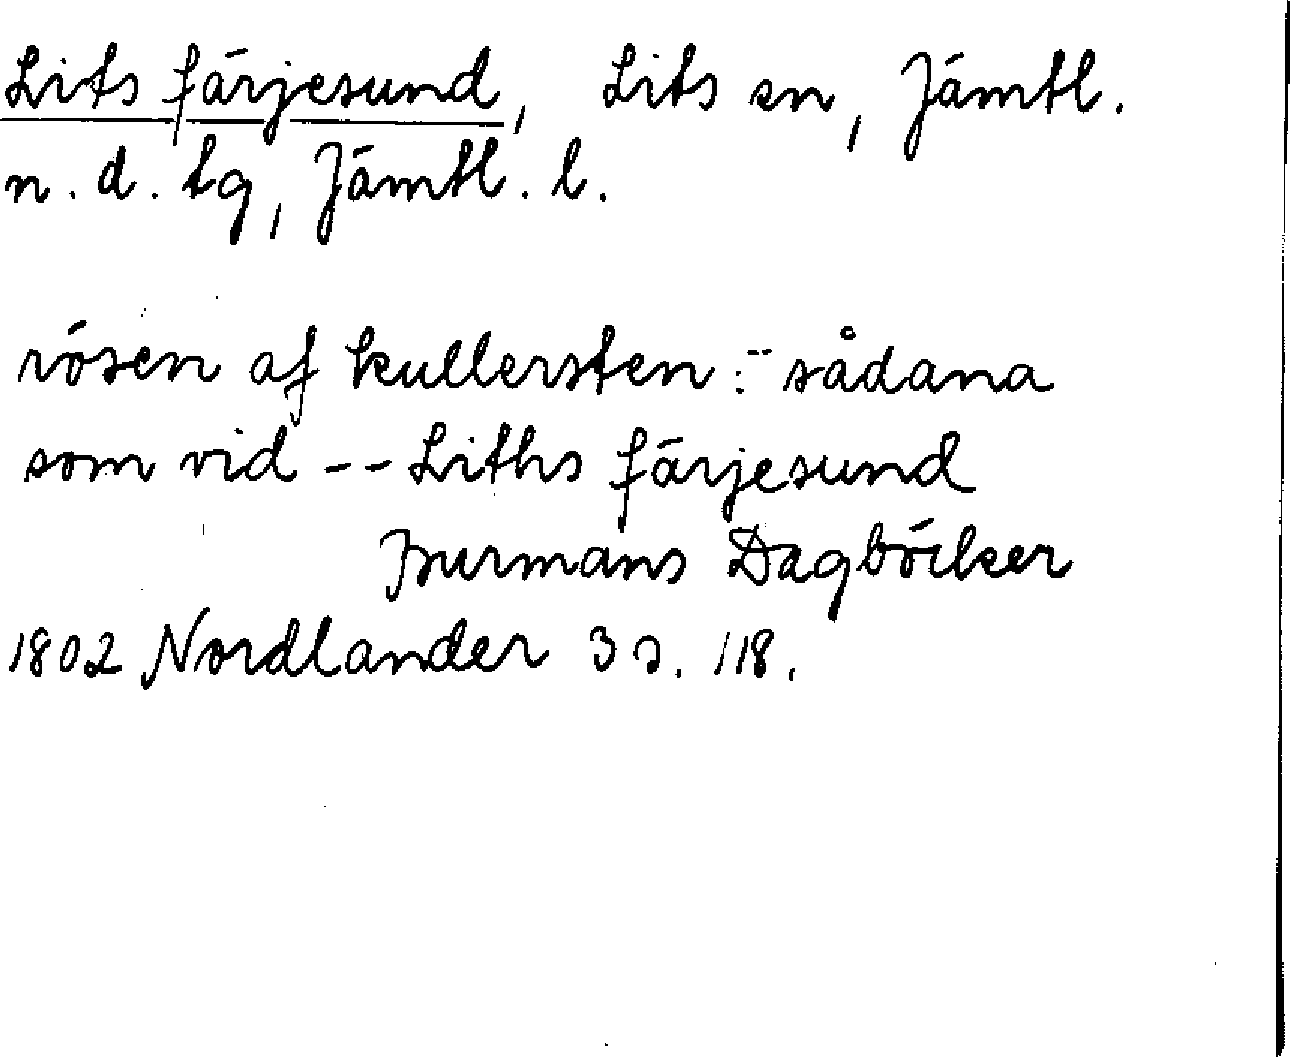 Lits färjesund, Lits sn, Jämtl.
n. d. tg, Jämtl. l.
rösen af kullersten :-- sådana
som vid -- Liths färjesund
Burmans Dagböcker
1802 Nordlander 3 s. 118.